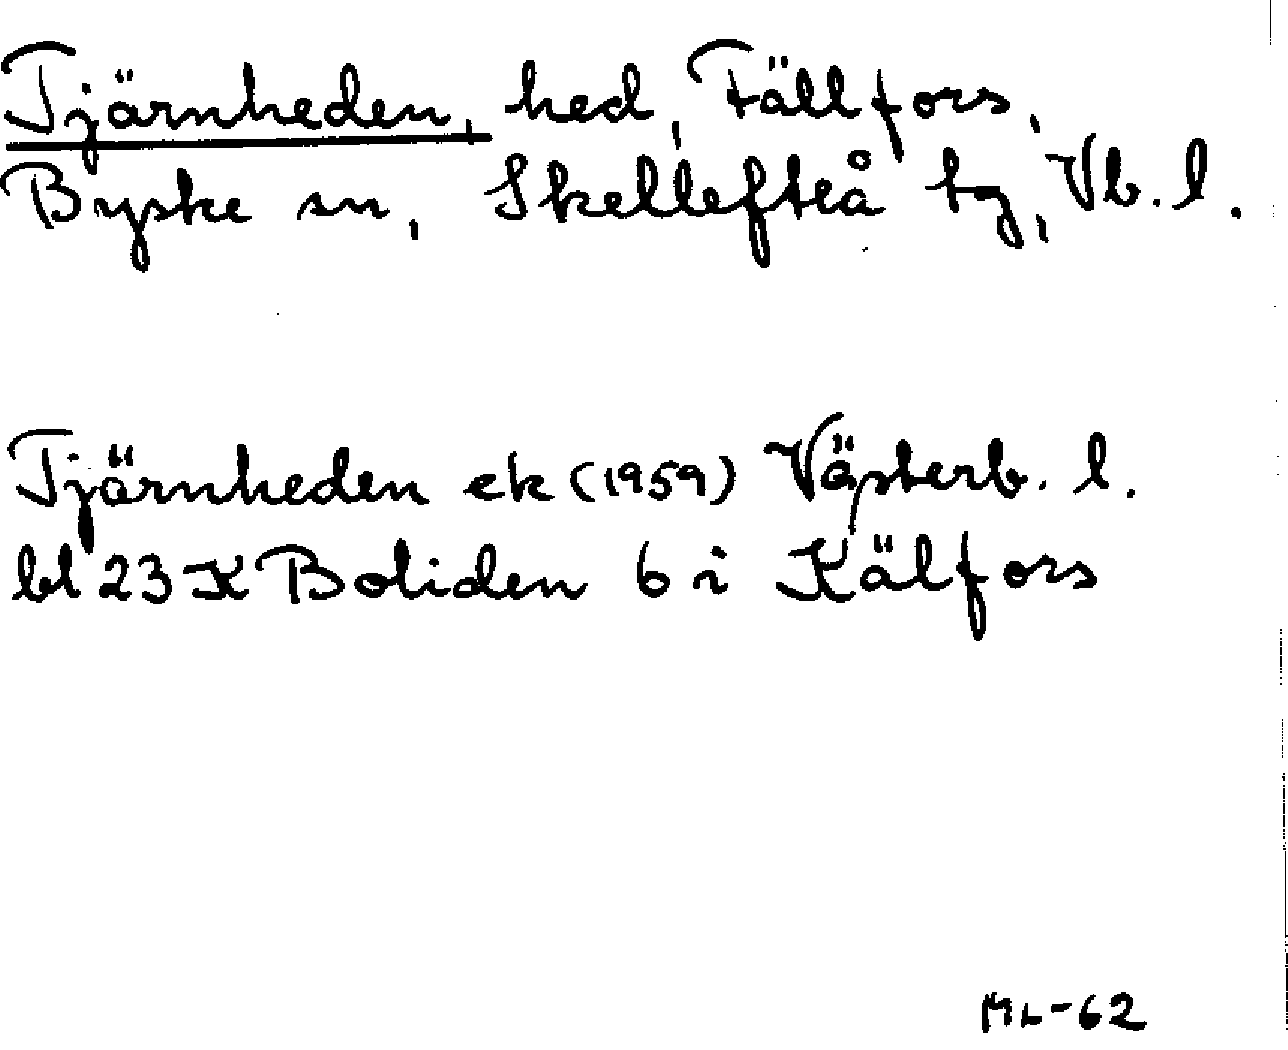 Tjärnheden, hed, Fällfors,
Byske sn, Skellefteå tg, Vb. l.
Tjärnheden ek (1959) Västerb. l.
bl 23 K Boliden 6 i Källfors
ML-62